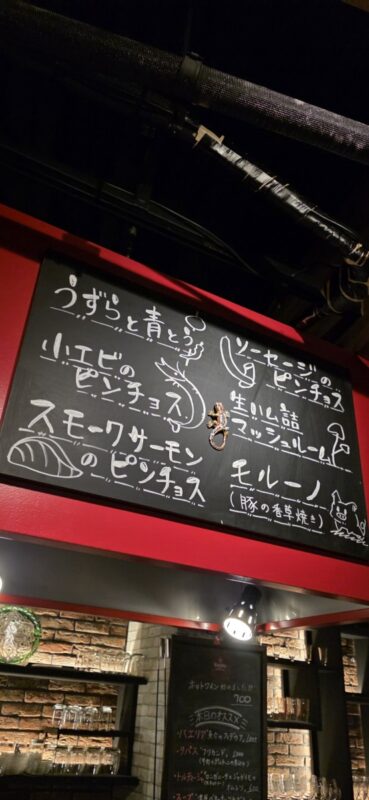 うずらと青とう
小エビの
ピンチョス
スモークサーモン
のピンチョス
ソーセージの
ピンチョス
生ハム詰
マッシュルーム
モルーノ
(豚の香草焼き)
ホットワイン 始めました
700
本日のオススメ